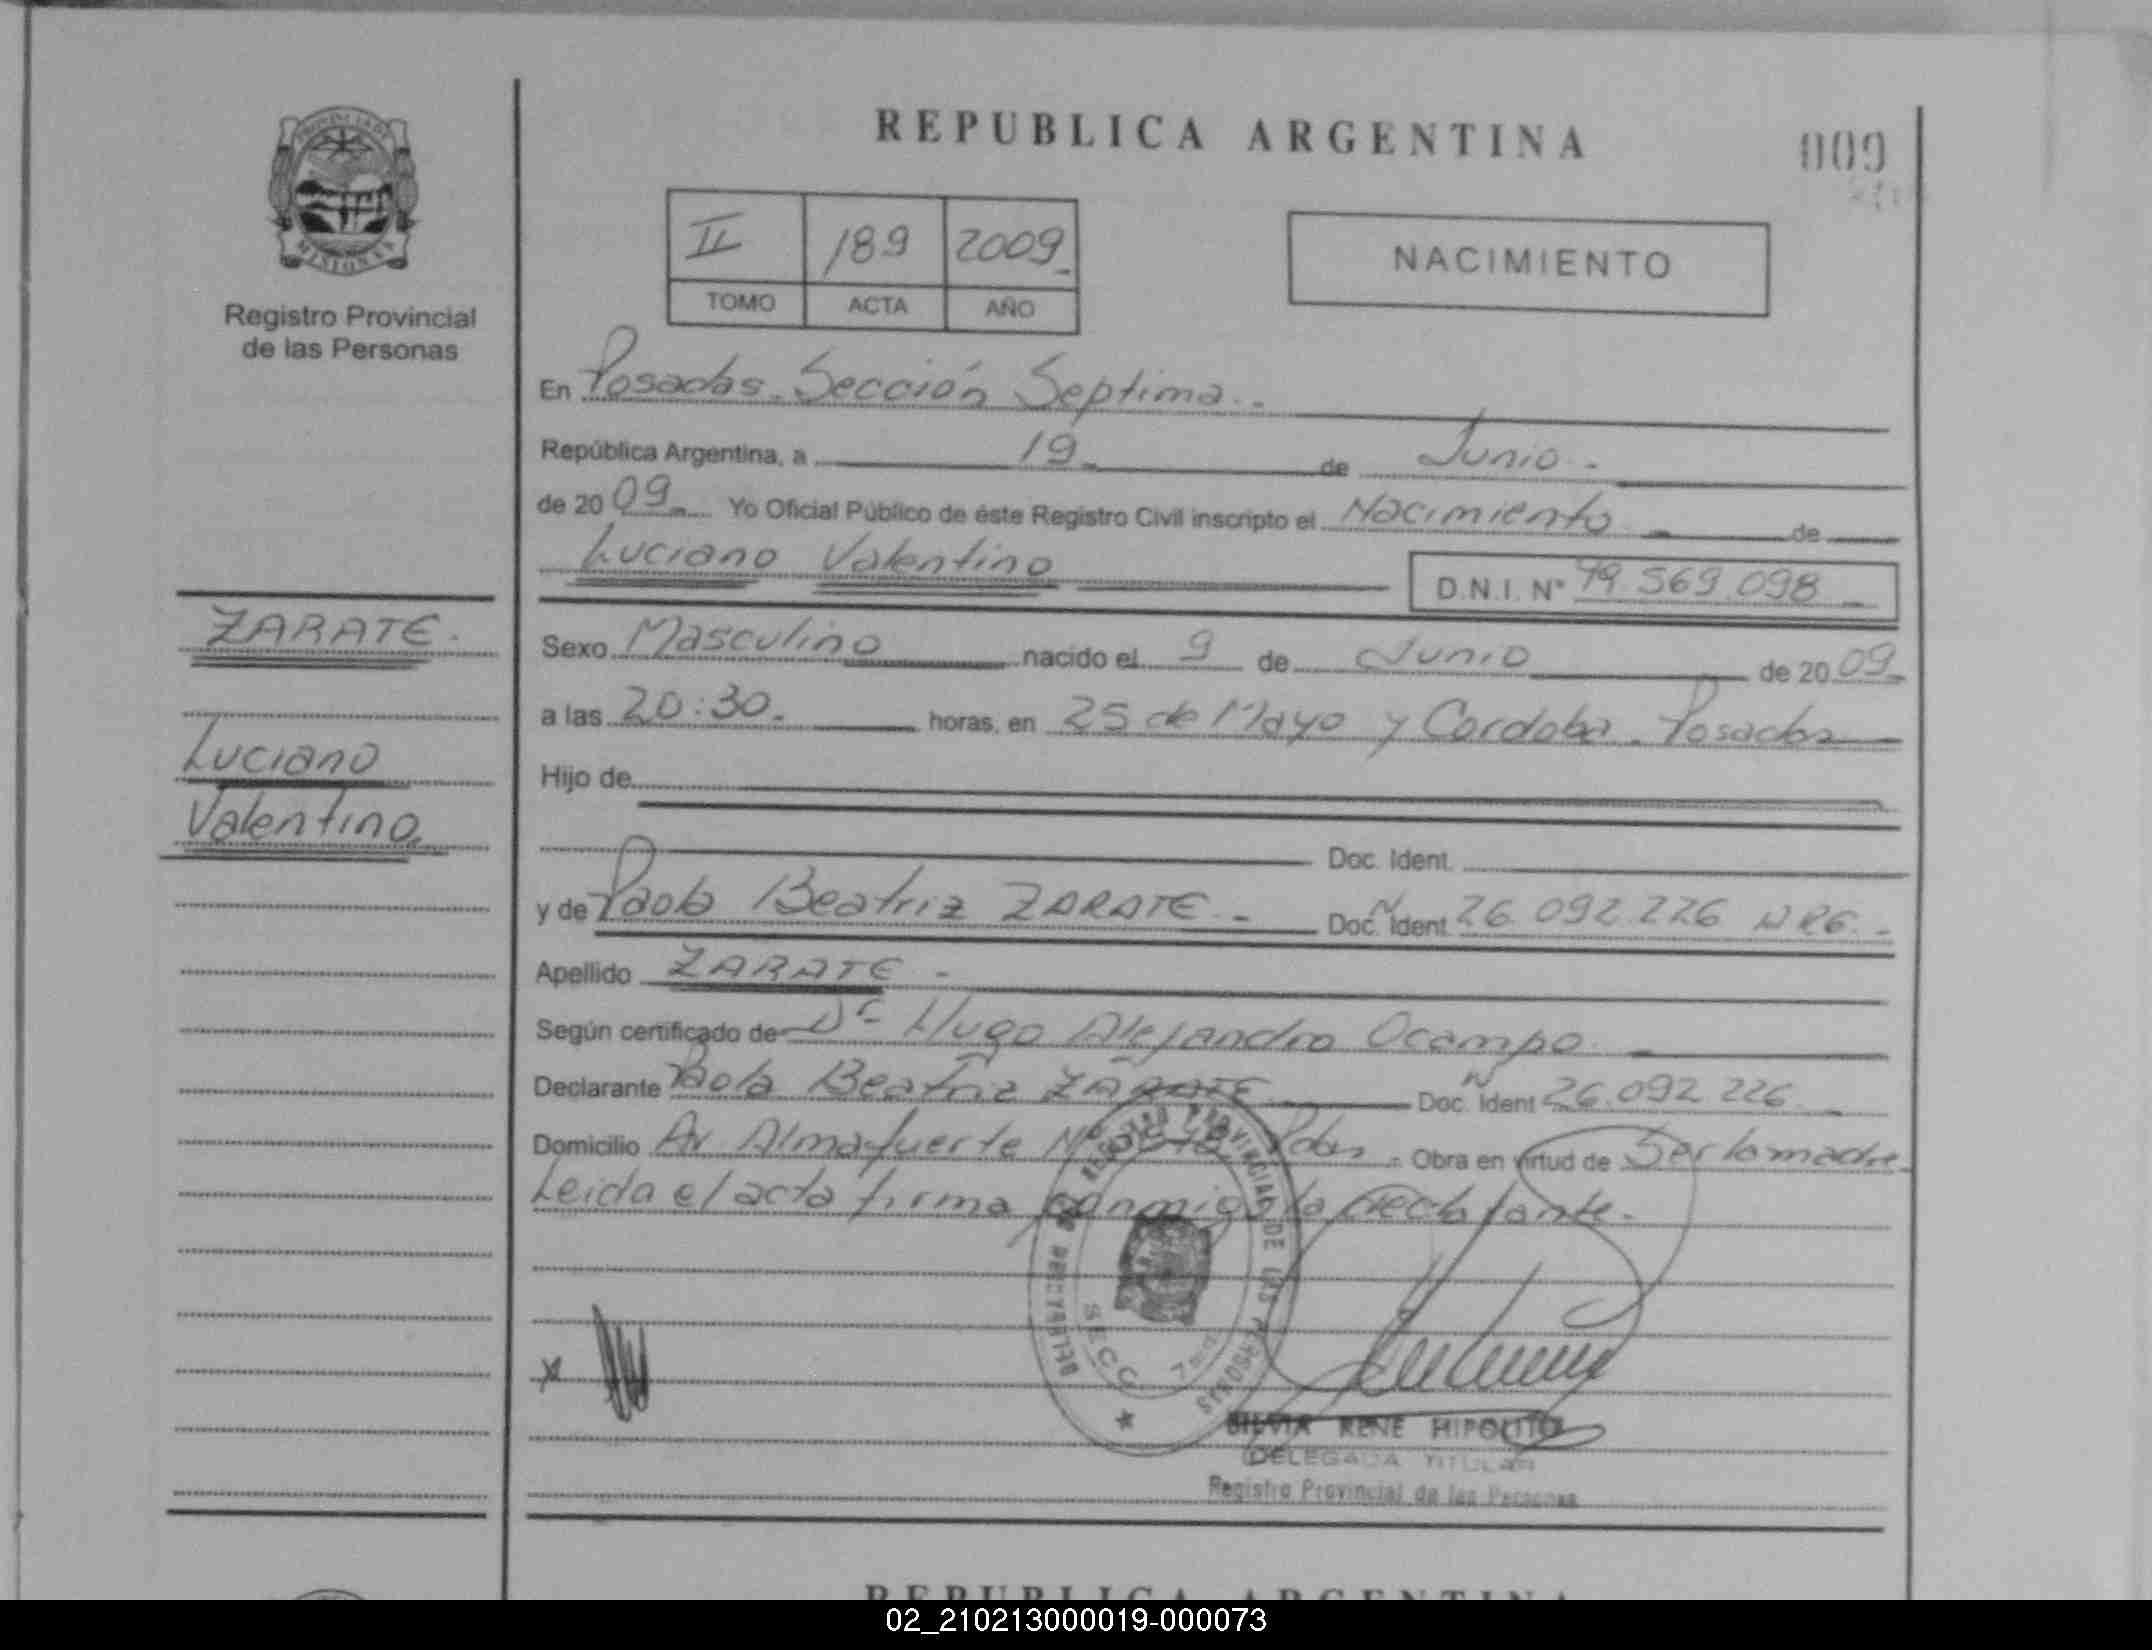 REPUBLICA ARGENTINA
009
PROVINCIA DE
MISIONES
Registro Provincial
de las Personas
II 189 2009
TOMO ACTA AÑO
NACIMIENTO
En Posadas. Sección Septima.
República Argentina, a 19 de Junio
de 2009 Yo Oficial Público de éste Registro Civil inscripto el Nacimiento de
Luciano Valentino
D.N.I. Nº 49.569.098
ZARATE.
Luciano
Valentino
Sexo Masculino nacido el 9 de Junio de 2009
a las 20:30 horas, en 25 de Mayo y Cordoba. Posadas
Hijo de
Doc. Ident.
y de Paola Beatriz ZARATE. Doc. Ident. 26.092.226
Apellido ZARATE
Según certificado de Dr Hugo Alejandro Ocampo
Declarante Paola Beatriz ZARATE Doc. Ident 26.092.226
Domicilio Av Almafuerte Pdas Obra en virtud de Ser la madre
Leida el acta firma conmigo la declarante.
x
REGISTRO PROVINCIAL DE LAS PERSONAS
SECC. 7
SILVIA RENE HIPOLITO
DELEGADA TITULAR
Registro Provincial de las Personas
REPUBLICA ARGENTINA
02_210213000019-000073